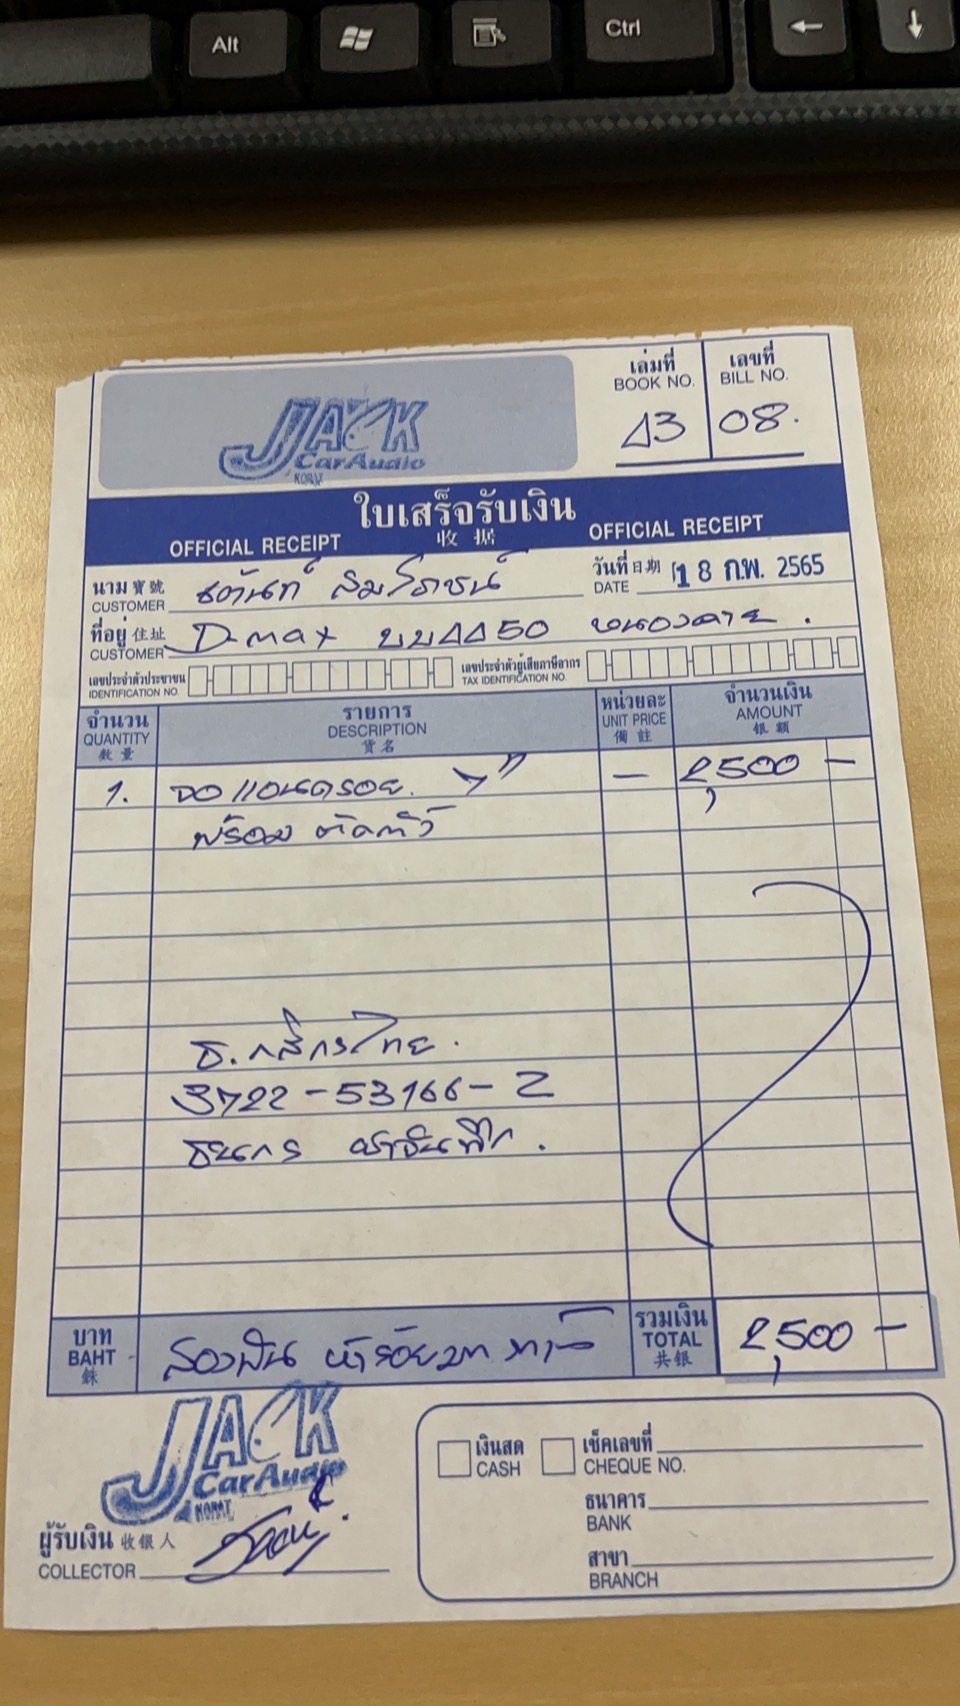 Alt
Ctrl
เล่มที่ เลขที่
BOOK NO. BILL NO.
13 08.
JACK
Car Audio
KORAT
ใบเสร็จรับเงิน
OFFICIAL RECEIPT 收据 OFFICIAL RECEIPT
นาม 寶號
CUSTOMER
วันที่ 日期
DATE 18 ก.พ. 2565
ที่อยู่ 住址 D-max หนองคาย.
CUSTOMER
เลขประจำตัวประชาชน
IDENTIFICATION NO.
เลขประจำตัวผู้เสียภาษีอากร
TAX IDENTIFICATION NO.
จำนวน รายการ หน่วยละ จำนวนเงิน
QUANTITY DESCRIPTION UNIT PRICE AMOUNT
數量 貨名 備註 銀額
1. จอแอนดรอย. 7" — 2,500 —
พร้อม
ธ.กสิกรไทย.
3722-53166-2
ธนกร
บาท
BAHT
銖
สองพันห้าร้อยบาท
รวมเงิน
TOTAL
共銀
2,500 —
JACK
Car Audio
KORAT
ผู้รับเงิน 收银人
COLLECTOR
เงินสด
CASH
เช็คเลขที่
CHEQUE NO.
ธนาคาร
BANK
สาขา
BRANCH